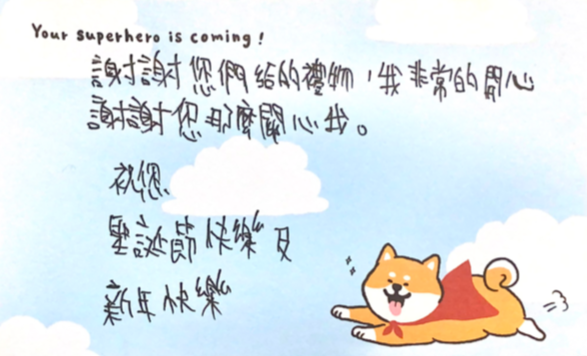 Your superhero is coming!
謝謝您們給的禮物,我非常的開心
謝謝您那麼關心我。
祝您
聖誕節快樂及
新年快樂